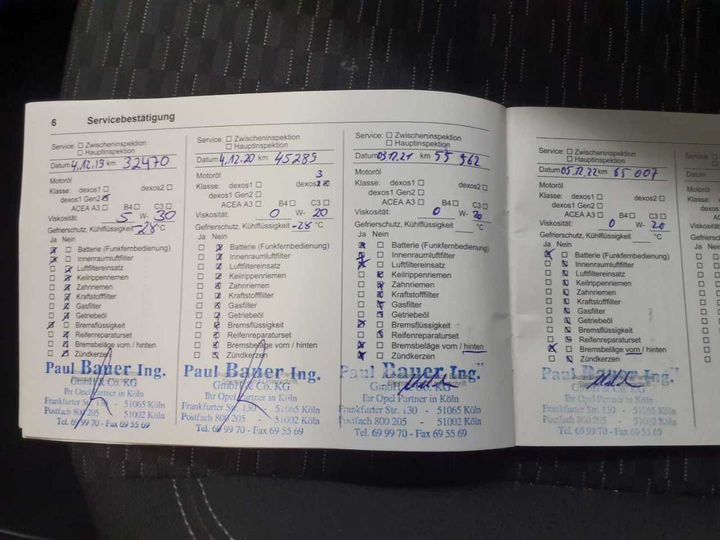 6 Servicebestätigung
Service: ☐ Zwischeninspektion
☐ Hauptinspektion
Datum 4.12.19 km 32470
Motoröl
Klasse: dexos1 ☐ dexos2 ☐
dexos1 Gen2 ☒
ACEA A3 ☐ B4 ☐ C3 ☐
Viskosität: 5 W- 30
Gefrierschutz, Kühlflüssigkeit -28 °C
Ja Nein
Batterie (Funkfernbedienung)
Innenraumluftfilter
Luftfiltereinsatz
Keilrippenriemen
Zahnriemen
Kraftstofffilter
Gasfilter
Getriebeöl
Bremsflüssigkeit
Reifenreparaturset
Bremsbeläge vorn / hinten
Zündkerzen
Paul Bauer Ing.
GmbH & Co. KG
Ihr Opel Partner in Köln
Frankfurter Str. 130 - 51065 Köln
Postfach 800 205 - 51002 Köln
Tel. 69 99 70 - Fax 69 55 69
Service: ☐ Zwischeninspektion
☐ Hauptinspektion
Datum 4.12.20 km 45289
Motoröl
Klasse: dexos1 ☐ dexos2
dexos1 Gen2 ☐
ACEA A3 ☐ B4 ☐ C3 ☐
Viskosität: 0 W- 20
Gefrierschutz, Kühlflüssigkeit -28 °C
Ja Nein
Batterie (Funkfernbedienung)
Innenraumluftfilter
Luftfiltereinsatz
Keilrippenriemen
Zahnriemen
Kraftstofffilter
Gasfilter
Getriebeöl
Bremsflüssigkeit
Reifenreparaturset
Bremsbeläge vorn / hinten
Zündkerzen
Paul Bauer Ing.
GmbH & Co. KG
Ihr Opel Partner in Köln
Frankfurter Str. 130 - 51065 Köln
Postfach 800 205 - 51002 Köln
Tel. 69 99 70 - Fax 69 55 69
Service: ☐ Zwischeninspektion
☐ Hauptinspektion
Datum 03.12.21 km 55 962
Motoröl
Klasse: dexos1 ☐ dexos2 ☐
dexos1 Gen2 ☐
ACEA A3 ☐ B4 ☐ C3 ☐
Viskosität: 0 W- 20
Gefrierschutz, Kühlflüssigkeit °C
Ja Nein
Batterie (Funkfernbedienung)
Innenraumluftfilter
Luftfiltereinsatz
Keilrippenriemen
Zahnriemen
Kraftstofffilter
Gasfilter
Getriebeöl
Bremsflüssigkeit
Reifenreparaturset
Bremsbeläge vorn / hinten
Zündkerzen
Paul Bauer Ing.
GmbH & Co. KG
Ihr Opel Partner in Köln
Frankfurter Str. 130 - 51065 Köln
Postfach 800 205 - 51002 Köln
Tel. 69 99 70 - Fax 69 55 69
Service: ☐ Zwischeninspektion
☐ Hauptinspektion
Datum 05.12.22 km 65 007
Motoröl
Klasse: dexos1 ☐ dexos2 ☐
dexos1 Gen2 ☐
ACEA A3 ☐ B4 ☐ C3 ☐
Viskosität: 0 W- 20
Gefrierschutz, Kühlflüssigkeit °C
Ja Nein
Batterie (Funkfernbedienung)
Innenraumluftfilter
Luftfiltereinsatz
Keilrippenriemen
Zahnriemen
Kraftstofffilter
Gasfilter
Getriebeöl
Bremsflüssigkeit
Reifenreparaturset
Bremsbeläge vorn / hinten
Zündkerzen
Paul Bauer Ing.
GmbH & Co. KG
Ihr Opel Partner in Köln
Frankfurter Str. 130 - 51065 Köln
Postfach 800 205 - 51002 Köln
Tel. 69 99 70 - Fax 69 55 69
Service:
Datum
Motoröl
Klasse: